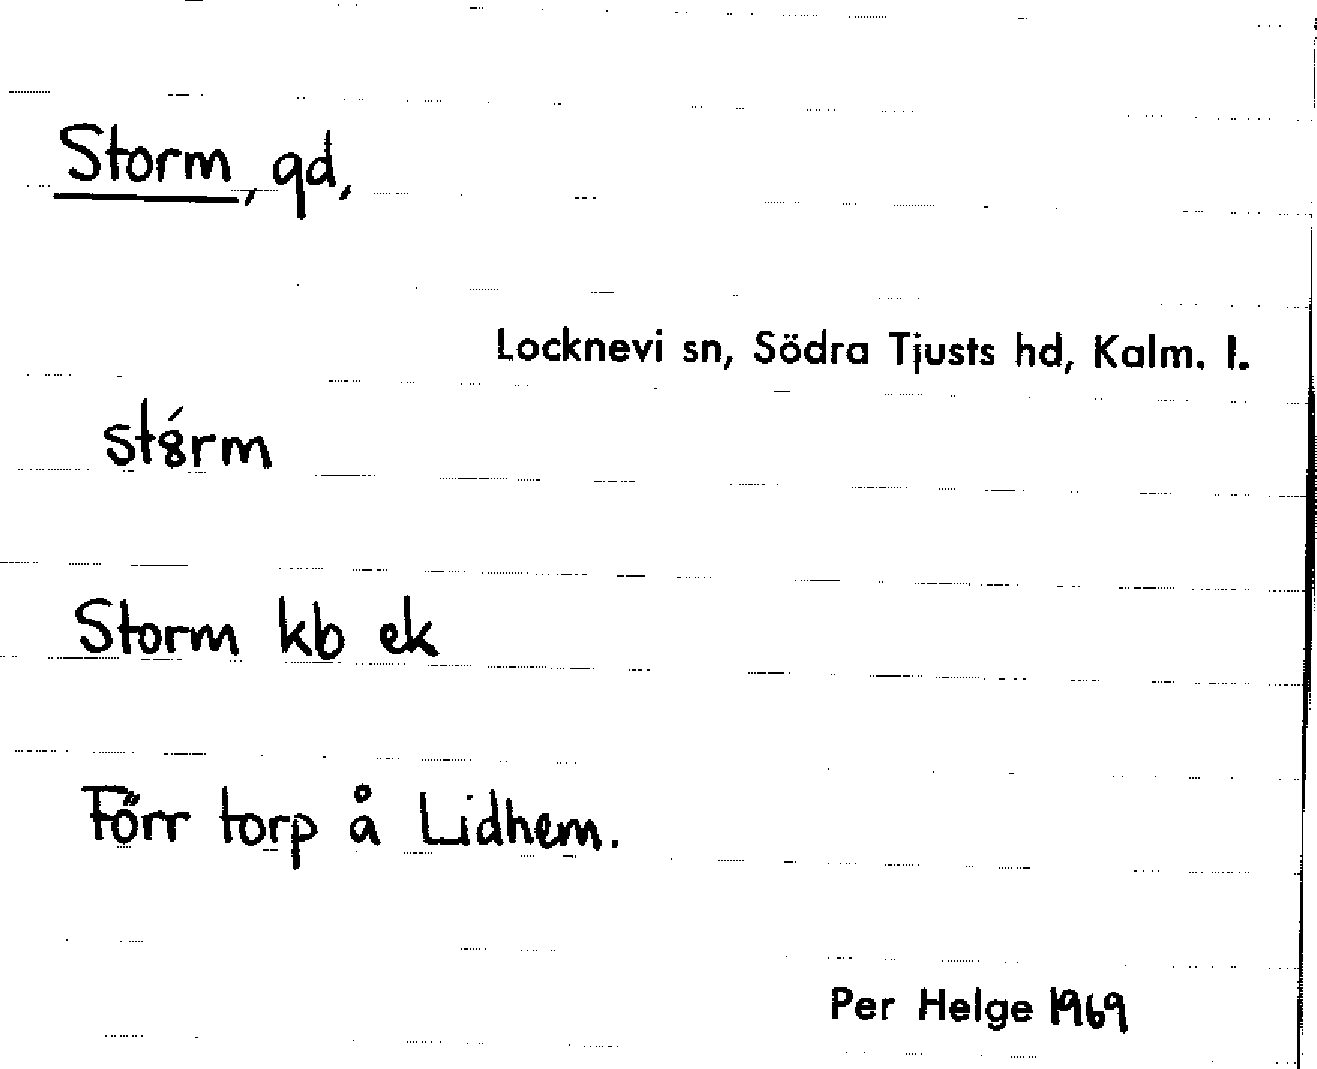 Storm, gd,
Locknevi sn, Södra Tjusts hd, Kalm. l.
Storm kb ek
Förr torp å Lidhem.
Per Helge 1969